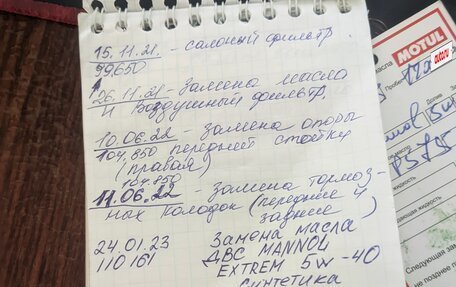 15.11.21 - салоный фильтр
99650
26.11.21 - Замена масла
и воздушный фильтр.
10.06.22 - Замена опоры
104.850 передней стойки
(правая)
104.850
11.06.22 - замена тормоз-
ных колодок (передние и
задние)
24.01.23 Замена масла
110161 ДВС MANNOL
EXTREM 5W-40
Синтетика
MOTUL